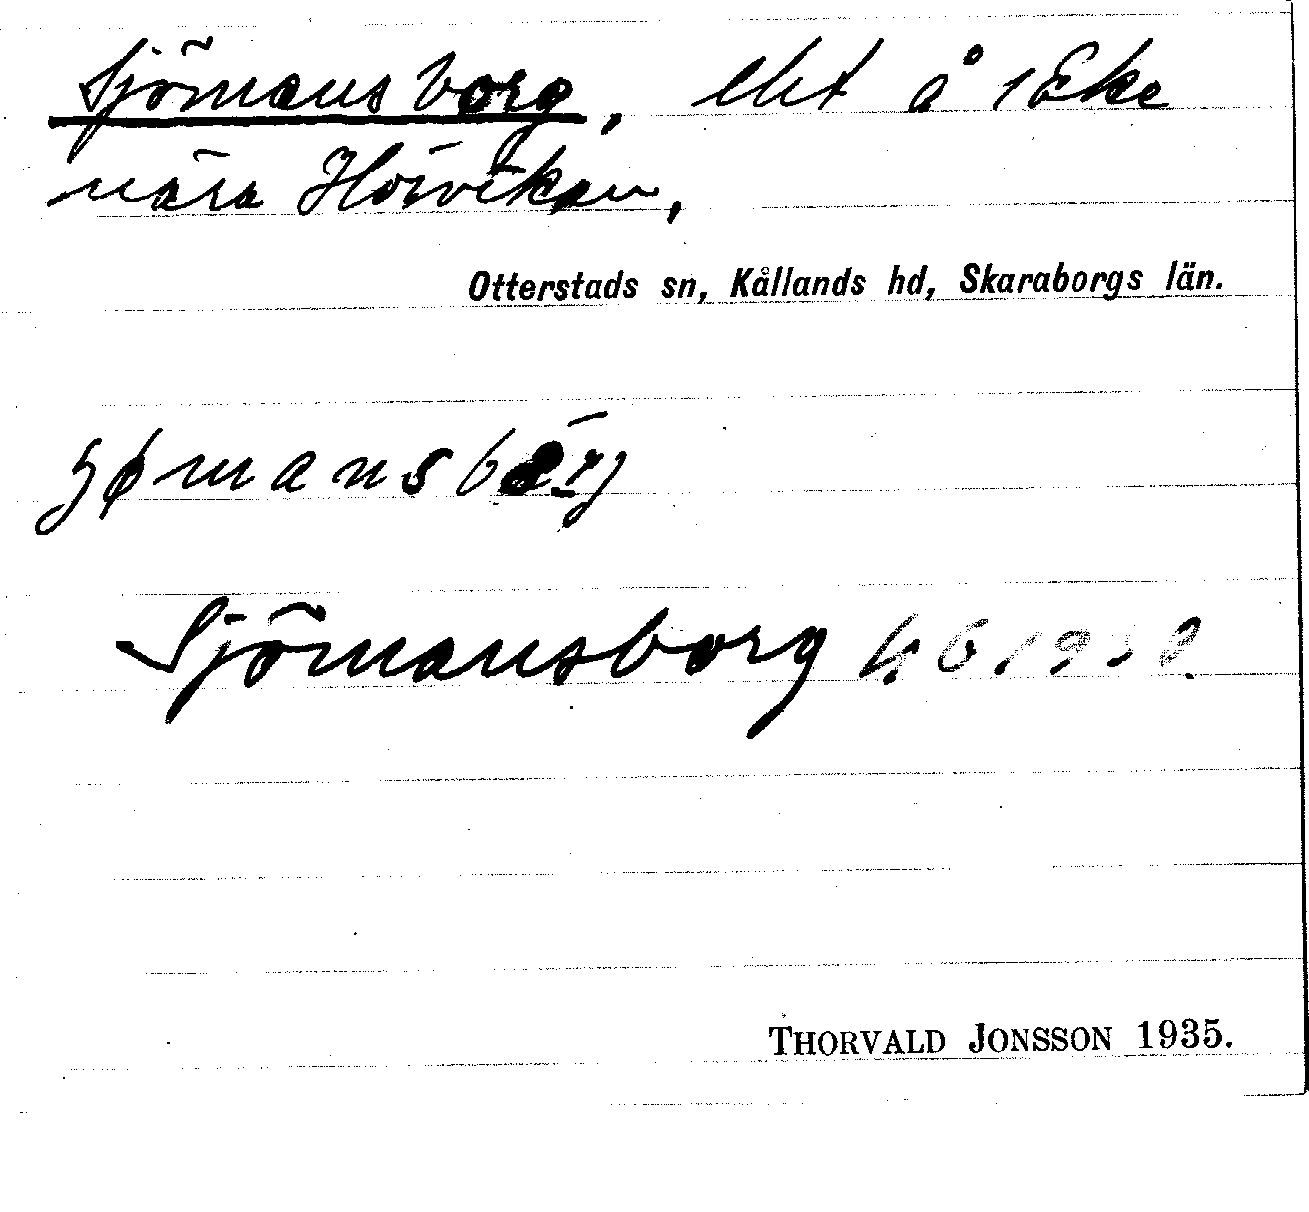 Sjömansborg, lht å 1 Eke
nära Hovviken,
Otterstads sn, Kållands hd, Skaraborgs län.
Sjömansborg
THORVALD JONSSON 1935.